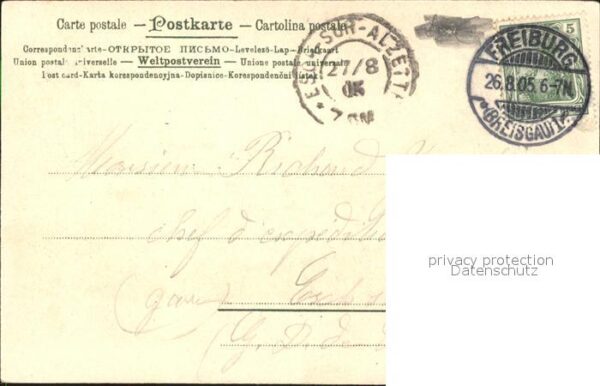 Carte postale — Postkarte — Cartolina postale
Correspondenz-Karte-ОТКРЫТОЕ ПИСЬМО-Levelező-Lap-Briefkaart
Union postale universelle — Weltpostverein — Unione postale universale
Post card-Karta korespondencyjna-Dopisnice-Korespondenční lístek
ESCH-SUR-ALZETTE
27/8
05
5
FREIBURG
26.8.05.6-7N.
BREISGAU
Monsieur Richard
chef d'expédition
(gare) Esch
G. D. de
privacy protection
Datenschutz